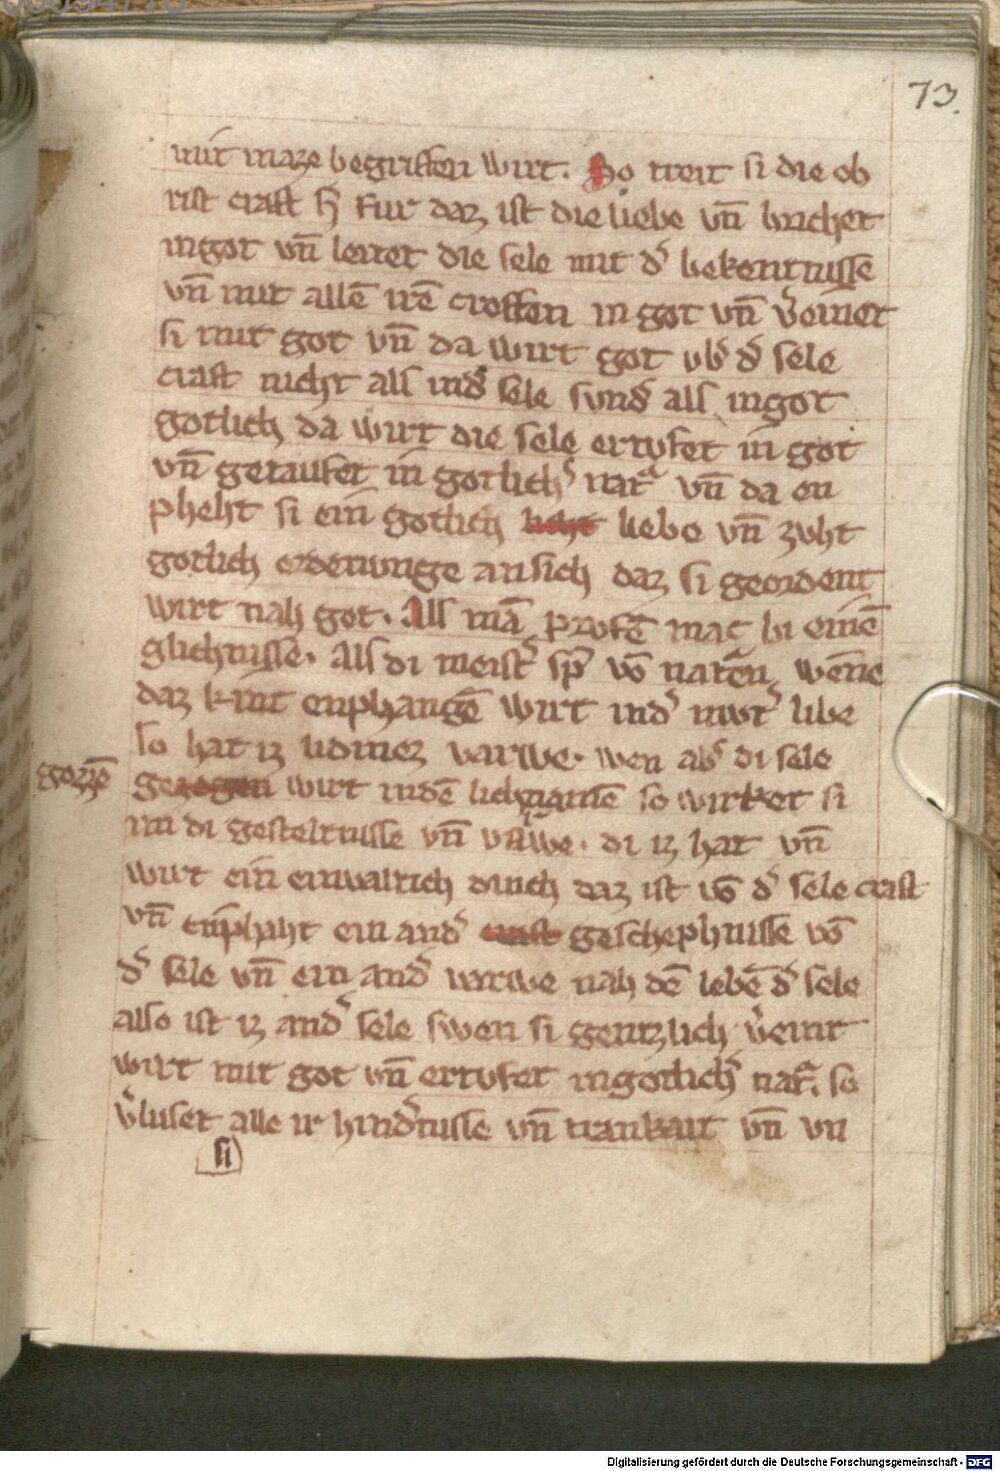 73.
mit maze begriffen wirt. So treit si die ob
rist craft h̄ Fur daz ist die liebe vn̄ brichet
in got vn̄ leitet die sele mit d͛ bekentnisse
vn̄ mit allē irē creften in got vn̄ v͛einet
si mit got vn̄ da wirt got vb͛ d͛ sele
craft nicht als in d͛ sele sund͛ als in got
gotlich da wirt die sele ertvfet in got
vn̄ getaufet in gotlich͛ natᵃ vn̄ da en
pheht si ein gotlich licht liebe vn̄ zvht
gotlich ordenunge an sich daz si geordent
wirt nah got. Als mā prvfē mac bi einē
glichnisse. Als di meist͛ sp̄ vō natᵃen, wenne
daz kint enphangē wirt in d͛ mvt͛ libe
so hat iz lidmez varwe. wen ab͛ di sele
gozzē
gezogen wirt in dē lichnamē so wirket si
im di gesteltnisse vn̄ vawe. di iz hat vn̄
wirt ein einvaltich dinch daz ist vō d͛ sele craft
vn̄ enphaht ein and͛ craft geschephnisse vō
d͛ sele vn̄ ein and͛ varwe nah dē lebē d͛ sele
also ist iz an d͛ sele swen si gentzlich v͛eint
wirt mit got vn̄ ertvfet in gotlich͛ natᵃ. so
v͛luset alle ir hind͛nisse vn̄ crankait vn̄ vn
si
Digitalisierung gefördert durch die Deutsche Forschungsgemeinschaft - DFG